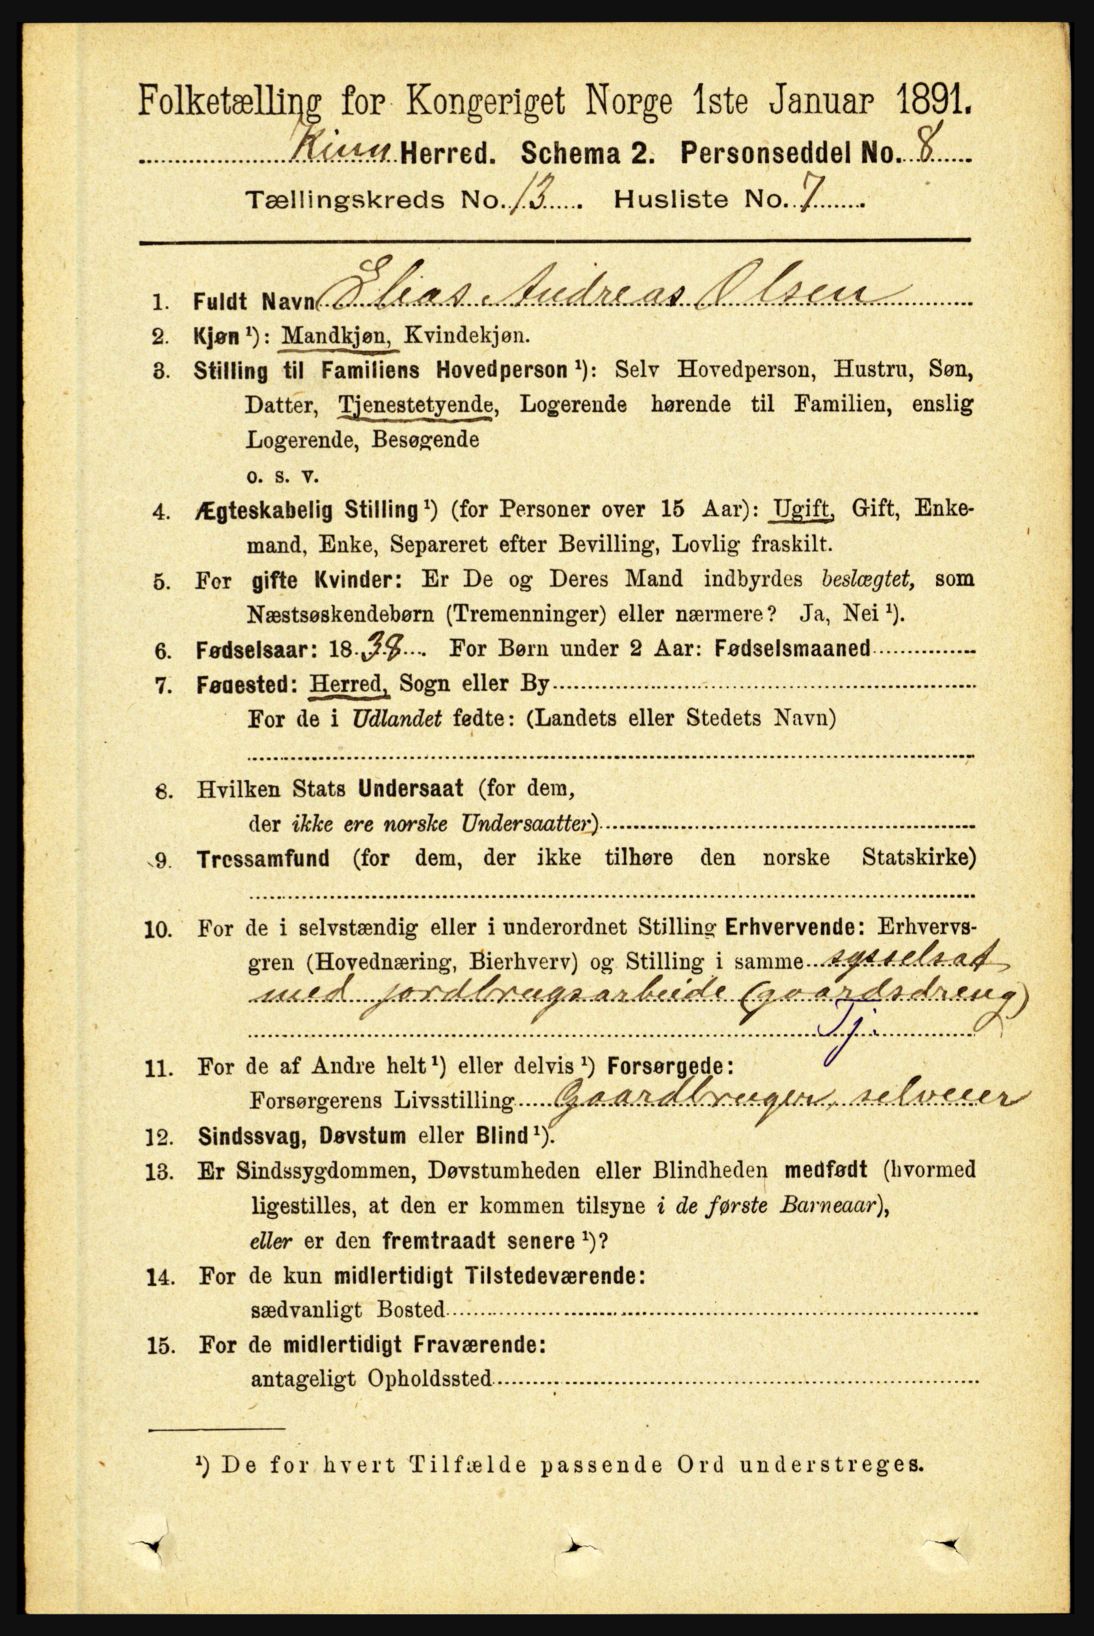 Folketælling for Kongeriget Norge 1ste Januar 1891.
Kinn Herred. Schema 2. Personseddel No. 8
Tællingskreds No. 13. Husliste No. 7.
1. Fuldt Navn Elias Andreas Olsen
2. Kjøn ¹): Mandkjøn, Kvindekjøn.
3. Stilling til Familiens Hovedperson ¹): Selv Hovedperson, Hustru, Søn,
Datter, Tjenestetyende, Logerende hørende til Familien, enslig
Logerende, Besøgende
o. s. v.
4. Ægteskabelig Stilling ¹) (for Personer over 15 Aar): Ugift, Gift, Enke-
mand, Enke, Separeret efter Bevilling, Lovlig fraskilt.
5. For gifte Kvinder: Er De og Deres Mand indbyrdes beslægtet, som
Næstsøskendebørn (Tremenninger) eller nærmere? Ja, Nei ¹).
6. Fødselsaar: 1838. For Børn under 2 Aar: Fødselsmaaned
7. Fødested: Herred, Sogn eller By
For de i Udlandet fødte: (Landets eller Stedets Navn)
8. Hvilken Stats Undersaat (for dem,
der ikke ere norske Undersaatter)
9. Trossamfund (for dem, der ikke tilhøre den norske Statskirke)
10. For de i selvstændig eller i underordnet Stilling Erhvervende: Erhvervs-
gren (Hovednæring, Bierhverv) og Stilling i samme sysselsat
med jordbrugsarbeide (gaardsdreng)
Tj.
11. For de af Andre helt ¹) eller delvis ¹) Forsørgede:
Forsørgerens Livsstilling Gaardbruger, selveier
12. Sindssvag, Døvstum eller Blind ¹).
13. Er Sindssygdommen, Døvstumheden eller Blindheden medfødt (hvormed
ligestilles, at den er kommen tilsyne i de første Barneaar),
eller er den fremtraadt senere ¹)?
14. For de kun midlertidigt Tilstedeværende:
sædvanligt Bosted
15. For de midlertidigt Fraværende:
antageligt Opholdssted
¹) De for hvert Tilfælde passende Ord understreges.